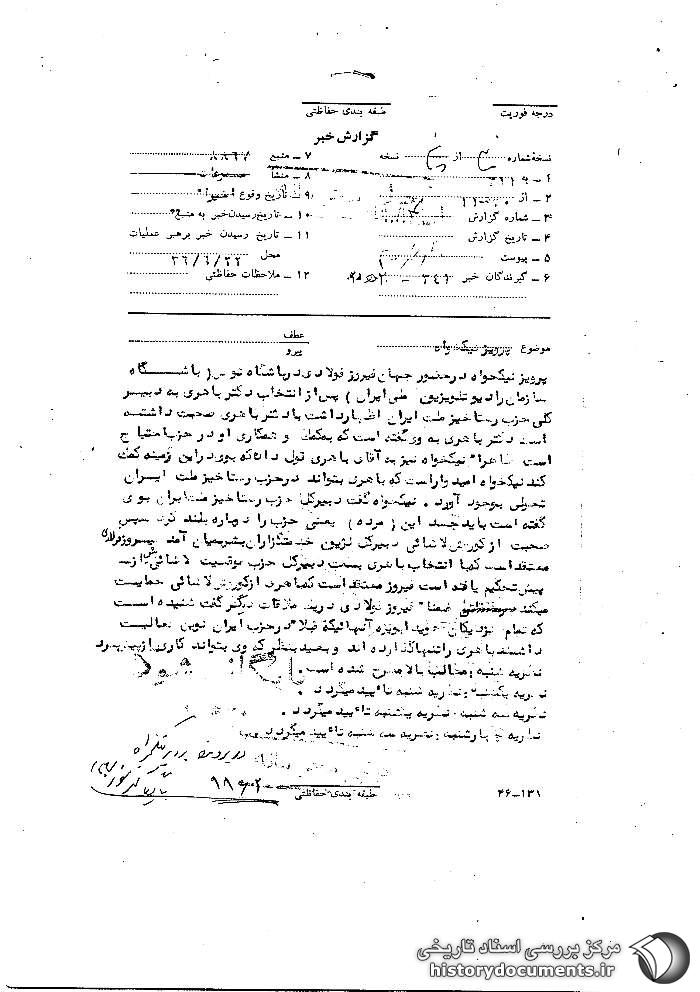 درجه فوریت
طبقه بندی حفاظتی
گزارش خبر
نسخهٔ شماره از نسخه
۱ - ۳۱۱۹
۲ - از
۳ - شماره گزارش
۴ - تاریخ گزارش
۵ - پیوست
۶ - گیرندگان خبر ۳۴۱ -
۷ - منبع ۸۸۶۷
۸ - منشأ مسموعات
۹ - تاریخ وقوع اخیرا"
۱۰ - تاریخ رسیدن خبر به منبع
۱۱ - تاریخ رسیدن خبر برهبر عملیات
محل ۳۶/۶/۲۲
۱۲ - ملاحظات حفاظتی
موضوع پرویز نیکخواه
عطف
پیرو
پرویز نیکخواه در حضور جهان فیروز فولادی در باشگاه توس ( باشگاه
سازمان رادیو تلویزیون ملی ایران ) پس از انتخاب دکتر باهری به دبیر
کلی حزب رستاخیز ملت ایران اظهار داشت با دکتر باهری صحبت داشته
است دکتر باهری به وی گفته است که به کمک و همکاری او در حزب احتیاج
است ظاهرا" نیکخواه نیز به آقای باهری قول داده که بوی در این زمینه کمک
کند نیکخواه امیدوار است که باهری بتواند در حزب رستاخیز ملت ایران
تحولی بوجود آورد . نیکخواه گفت دبیرکل حزب رستاخیز ملت ایران بوی
گفته است باید جسد این ( مرده ) یعنی حزب را دوباره بلند کرد سپس
صحبت از کورش لاشائی دبیرکل لژیون خدمتگزاران بشر بمیان آمد فیروز فولادی
معتقد است که با انتخاب باهری بسمت دبیرکل حزب موقعیت لاشائی بیش از
پیش تحکیم یافته است فیروز معتقد است که باهری از کورش لاشائی حمایت
میکند ضمنا" فیروز فولادی در یک ملاقات دیگر گفت شنیده است
که تمام نزدیکان هویدا بویژه آنهائیکه قبلا" در حزب ایران نوین فعالیت
داشتند باهری را تنها گذارده اند و بعید بنظر که وی بتواند کاری از پیش ببرد
نظریه شنبه : مطالب بالا مطرح شده است .
نظریه یکشنبه : نظریه شنبه تائید میگردد .
نظریه سه شنبه : نظریه یکشنبه تائید میگردد .
نظریه چهارشنبه : نظریه سه شنبه تائید میگردد
در پرونده پرویز نیکخواه
بایگانی شود
طبقه بندی حفاظتی
۴۶-۱۳۱
مرکز بررسی اسناد تاریخی
historydocuments.ir